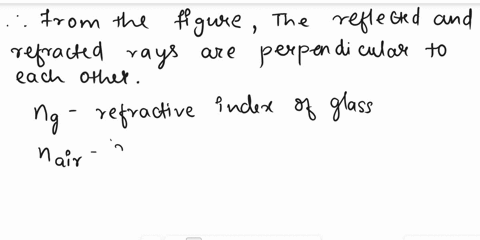 ∴ From the figure, The reflected and
refracted rays are perpendicular to
each other.
ng - refractive index of glass
nair -